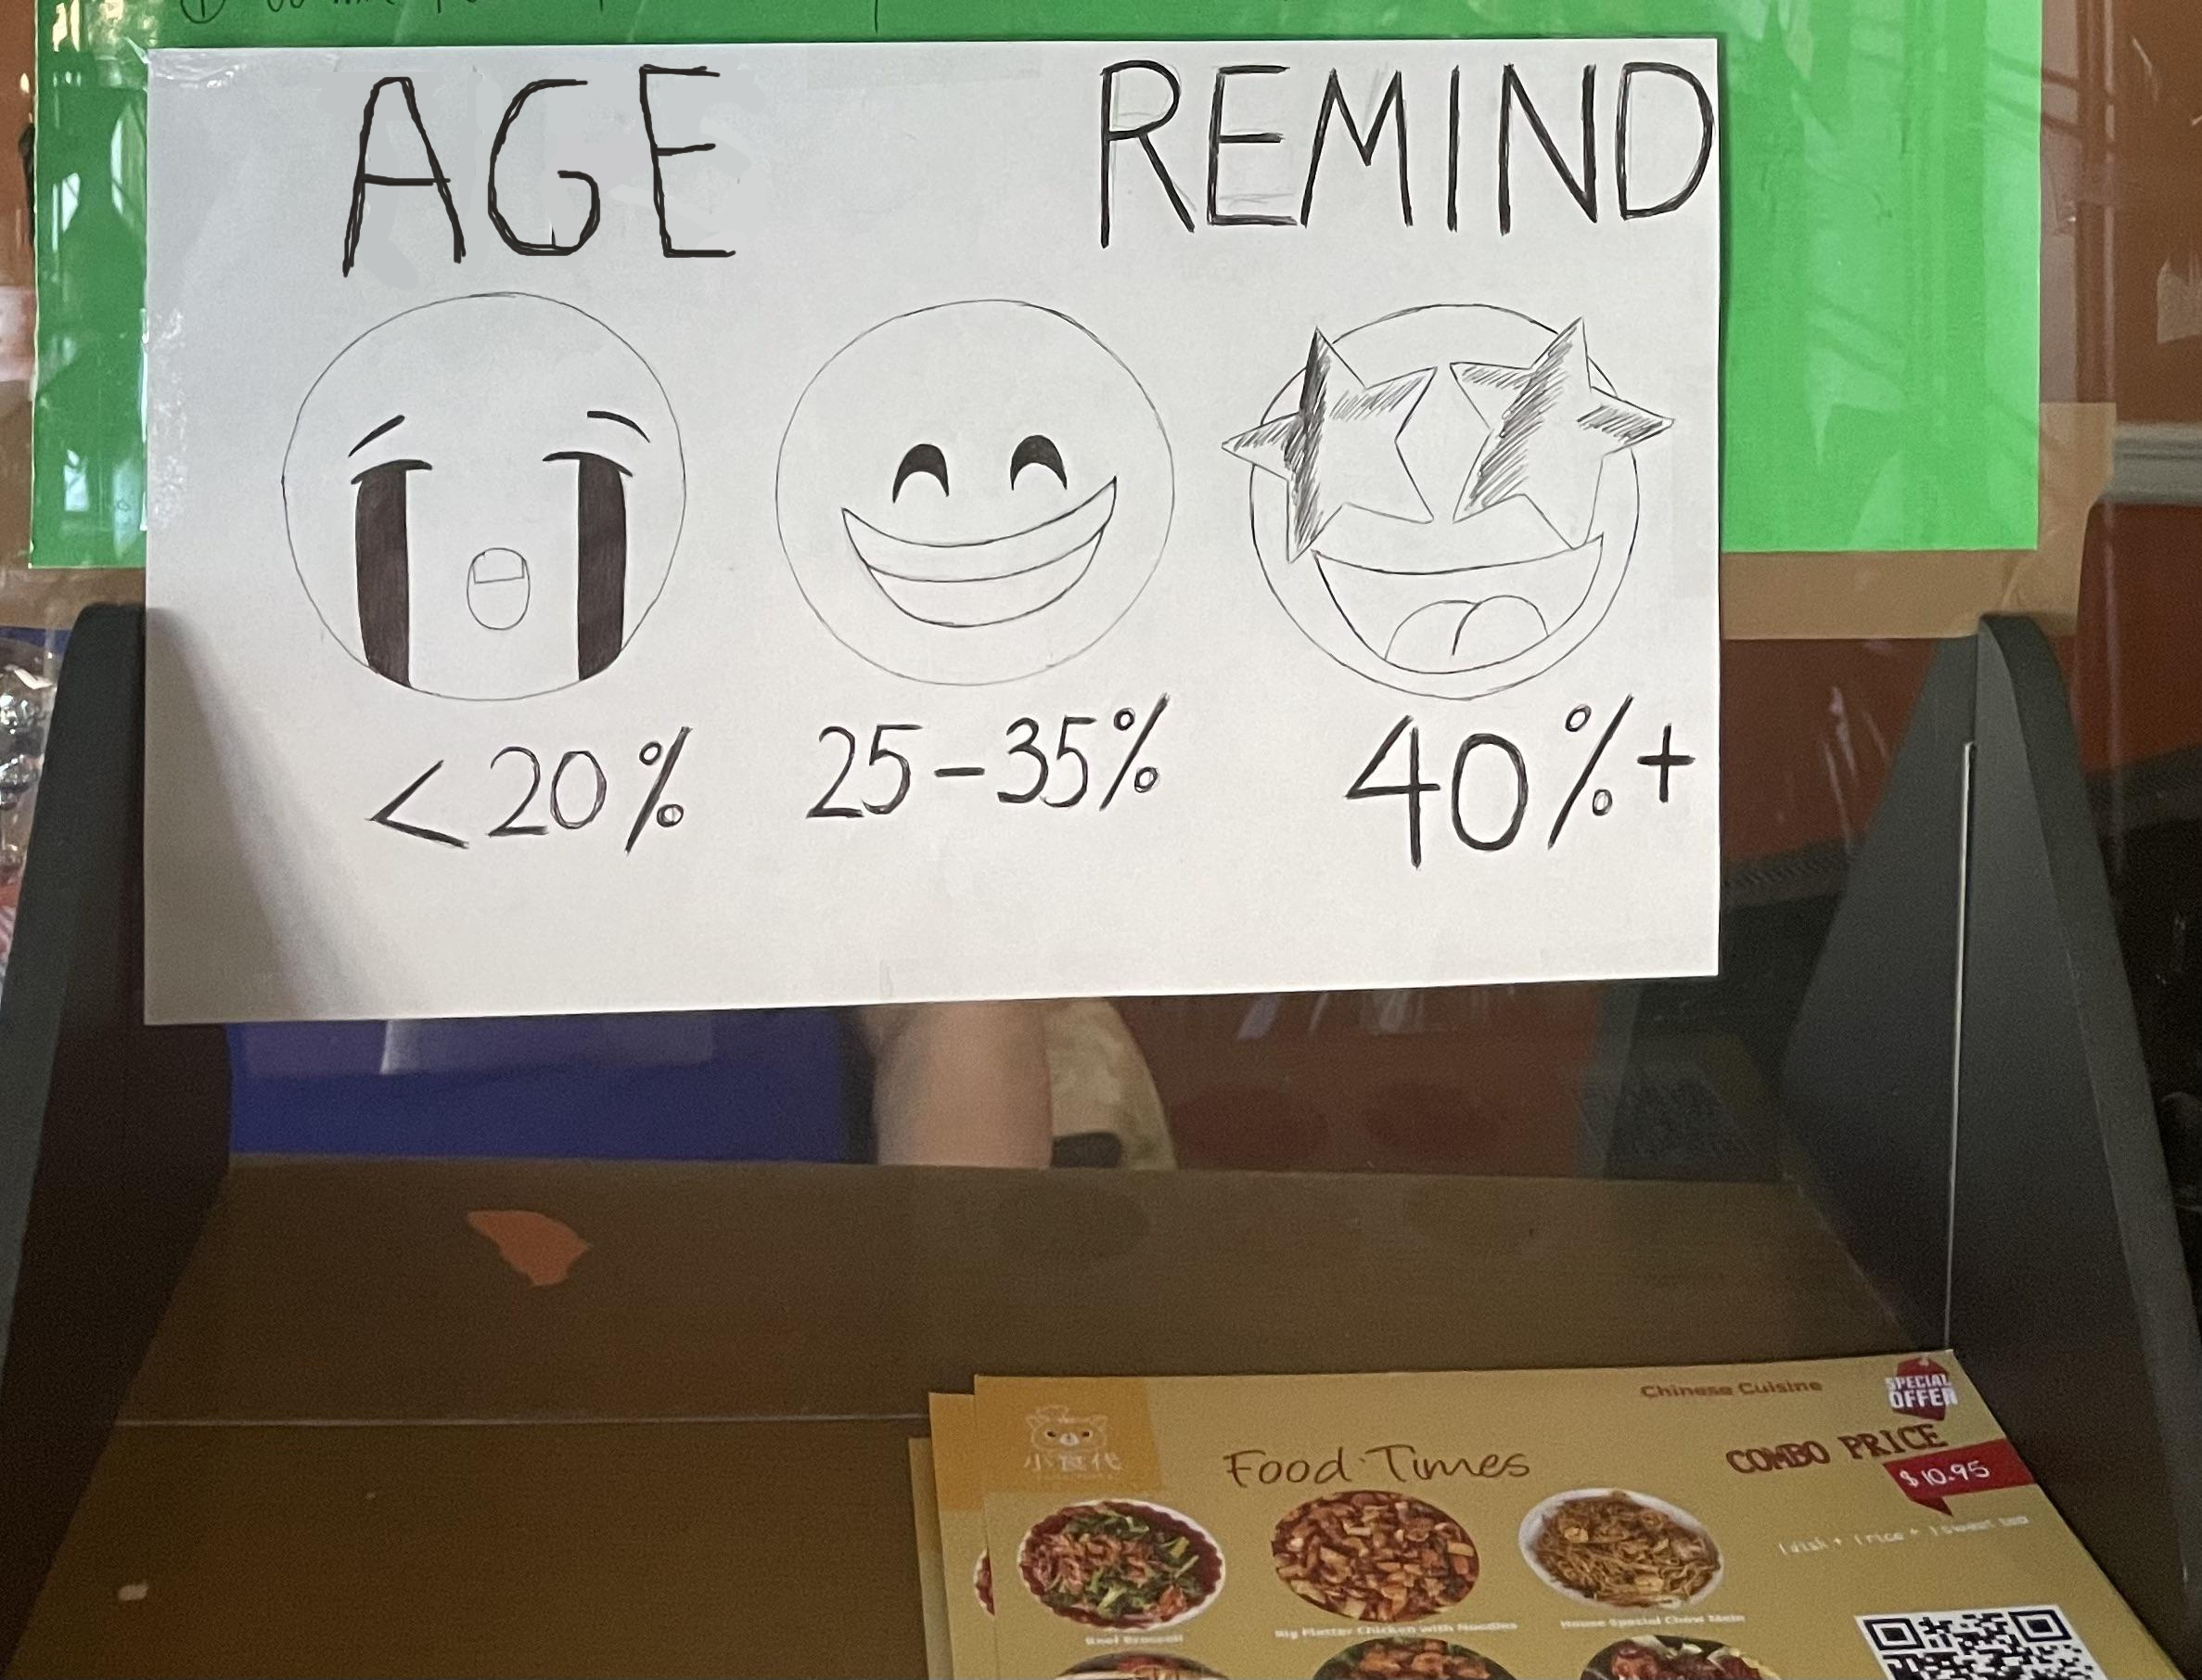 AGE REMIND
<20% 25-35% 40%+
Chinese Cuisine
SPECIAL
OFFER
小食代
Food Times
COMBO PRICE
$10.95
1 dish + 1 rice + 1 sweet tea
Beef Broccoli
Big Platter Chicken with Noodles
House Special Chow Mein